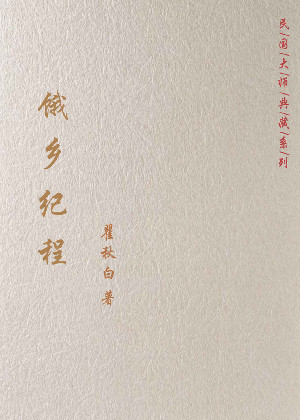 民/国/大/师/典/藏/系/列
餓乡纪程
瞿秋白著